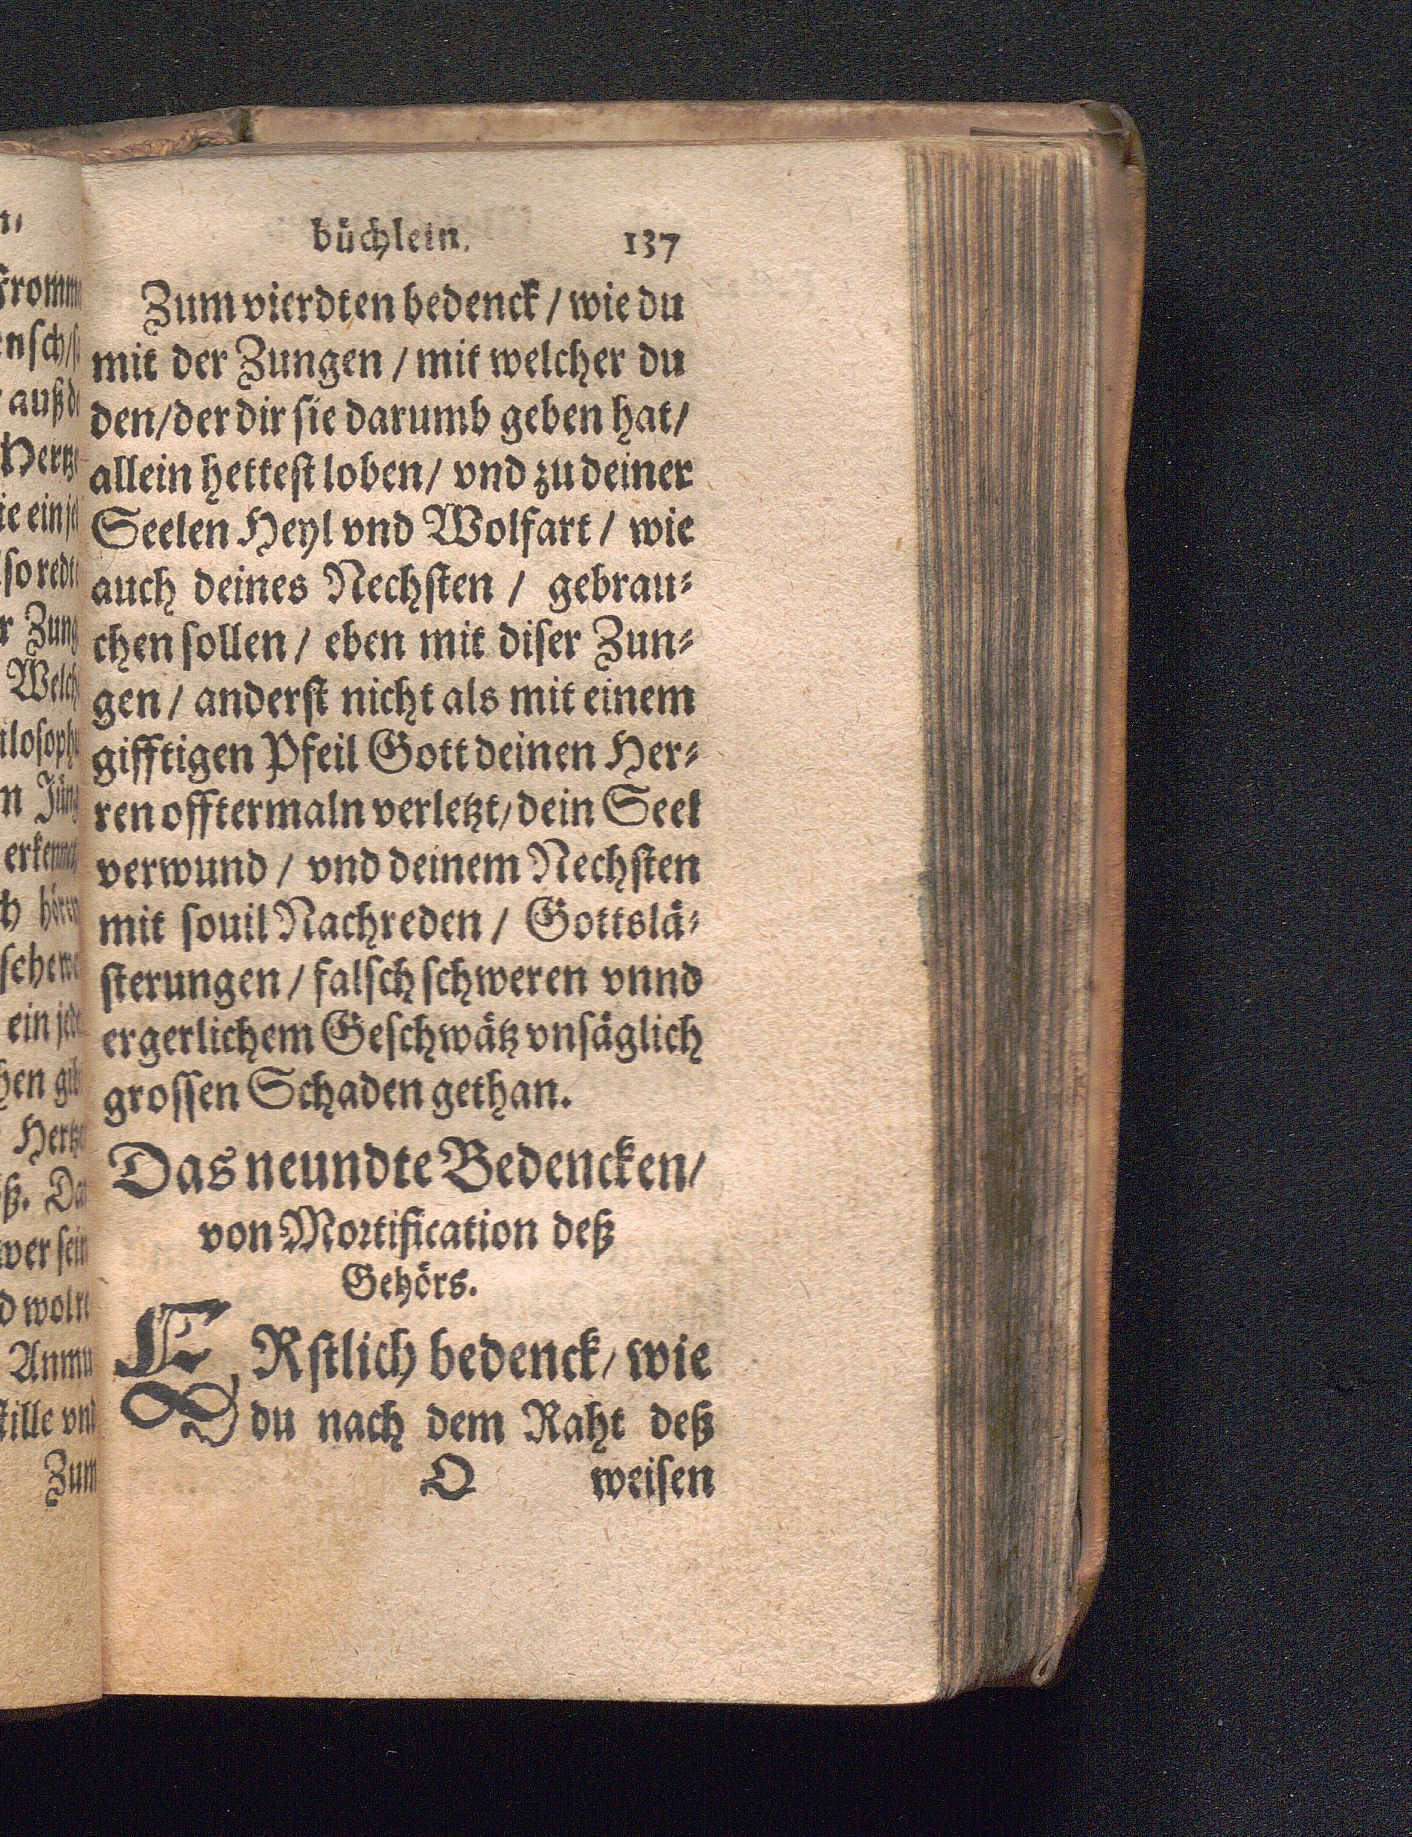 büchlein. 137
Zum vierdten bedenck / wie du
mit der Zungen / mit welcher du
den/der dir sie darumb geben hat/
allein hettest loben/ vnd zu deiner
Seelen Heyl vnd Wolfart / wie
auch deines Nechsten / gebrau-
chen sollen / eben mit diser Zun-
gen / anderst nicht als mit einem
gifftigen Pfeil Gott deinen Her-
ren offtermaln verletzt/dein Seel
verwund / vnd deinem Nechsten
mit souil Nachreden / Gottslä-
sterungen / falsch schweren vnnd
ergerlichem Geschwätz vnsäglich
grossen Schaden gethan.
Das neundte Bedencken/
von Mortification deß
Gehörs.
ERstlich bedenck/ wie
du nach dem Raht deß
O weisen